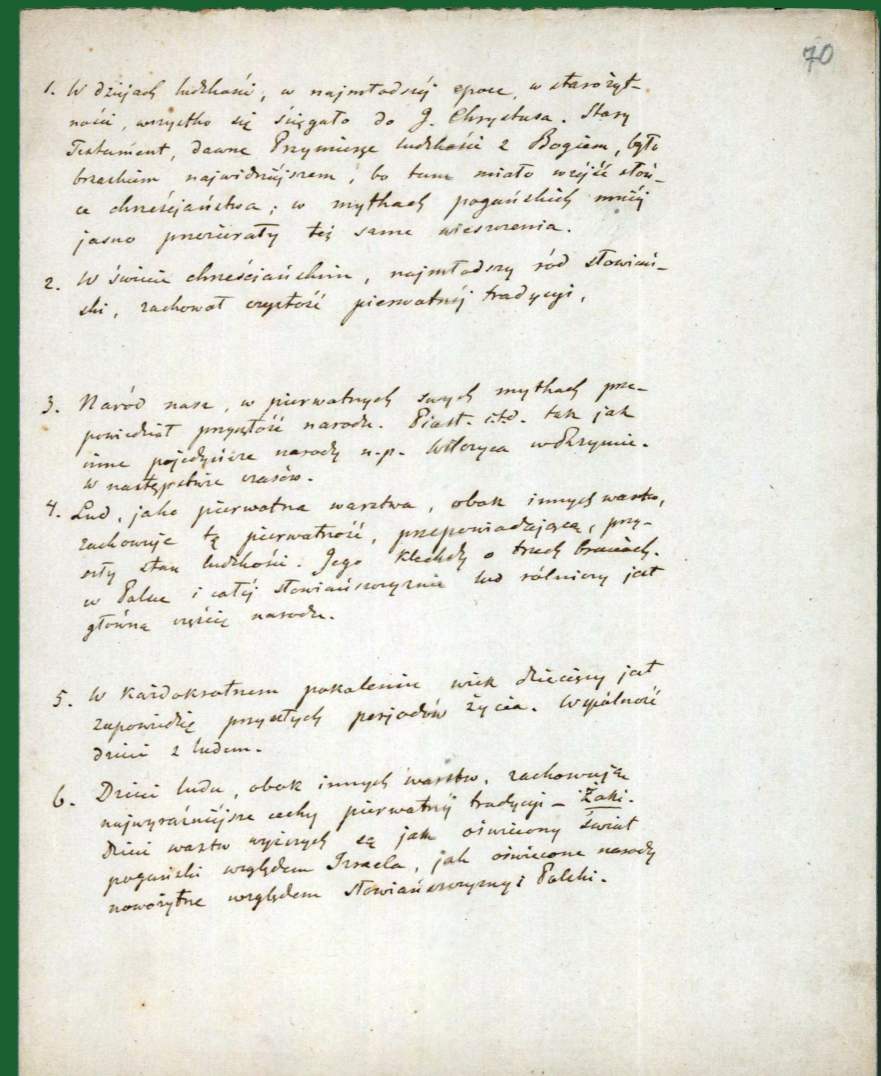 70
1. W dziejach ludzkości, w najmłodszéj epoce, w starożyt-
ności, wszystko się ścięgało do J. Chrystusa. Stary
Testament, dawne Przymierze ludzkości z Bogiem, było
brzaskiem najwidniejszem, bo tam miało wzéjść słoń-
ce chrześcjaństwa; w mythach pogańskich mniéj
jasno przezierały też same wieszczenia.
2. W świecie chrześciańskim, najmłodszy ród słowiań-
ski, zachował czystość pierwotnéj tradycyi,
3. Naród nasz, w pierwotnych swych mythach prze-
powiedział przyszłość narodu. Piast. i.t.d. tak jak
inne pojedyńcze narody n.p. Wilczyca w Rzymie.
w następstwie czasów.
4. Lud, jako pierwotna warstwa, obok innych warstw,
zachowuje tę pierwotność, przepowiadającą, przy-
szły stan ludzkości. Jego klechdy o trzech braciach.
w Polsce i całéj słowiańszczyznie lud rólniczy jest
główną częścią narodu.
5. W każdokrotnem pokoleniu wiek dziecięcy jest
zapowiedzią przyszłych perjodów życia. Wspólność
dzieci z ludem.
6. Dzieci ludu, obok innych warstw, zachowują
najwyraźniejsze cechy pierwotnéj tradycyi – Żaki.
Dzieci warstw wyższych są jak oświecony świat
pogański względem Izraela, jak oświecone narody
nowożytne względem słowiańszczyzny i Polski.